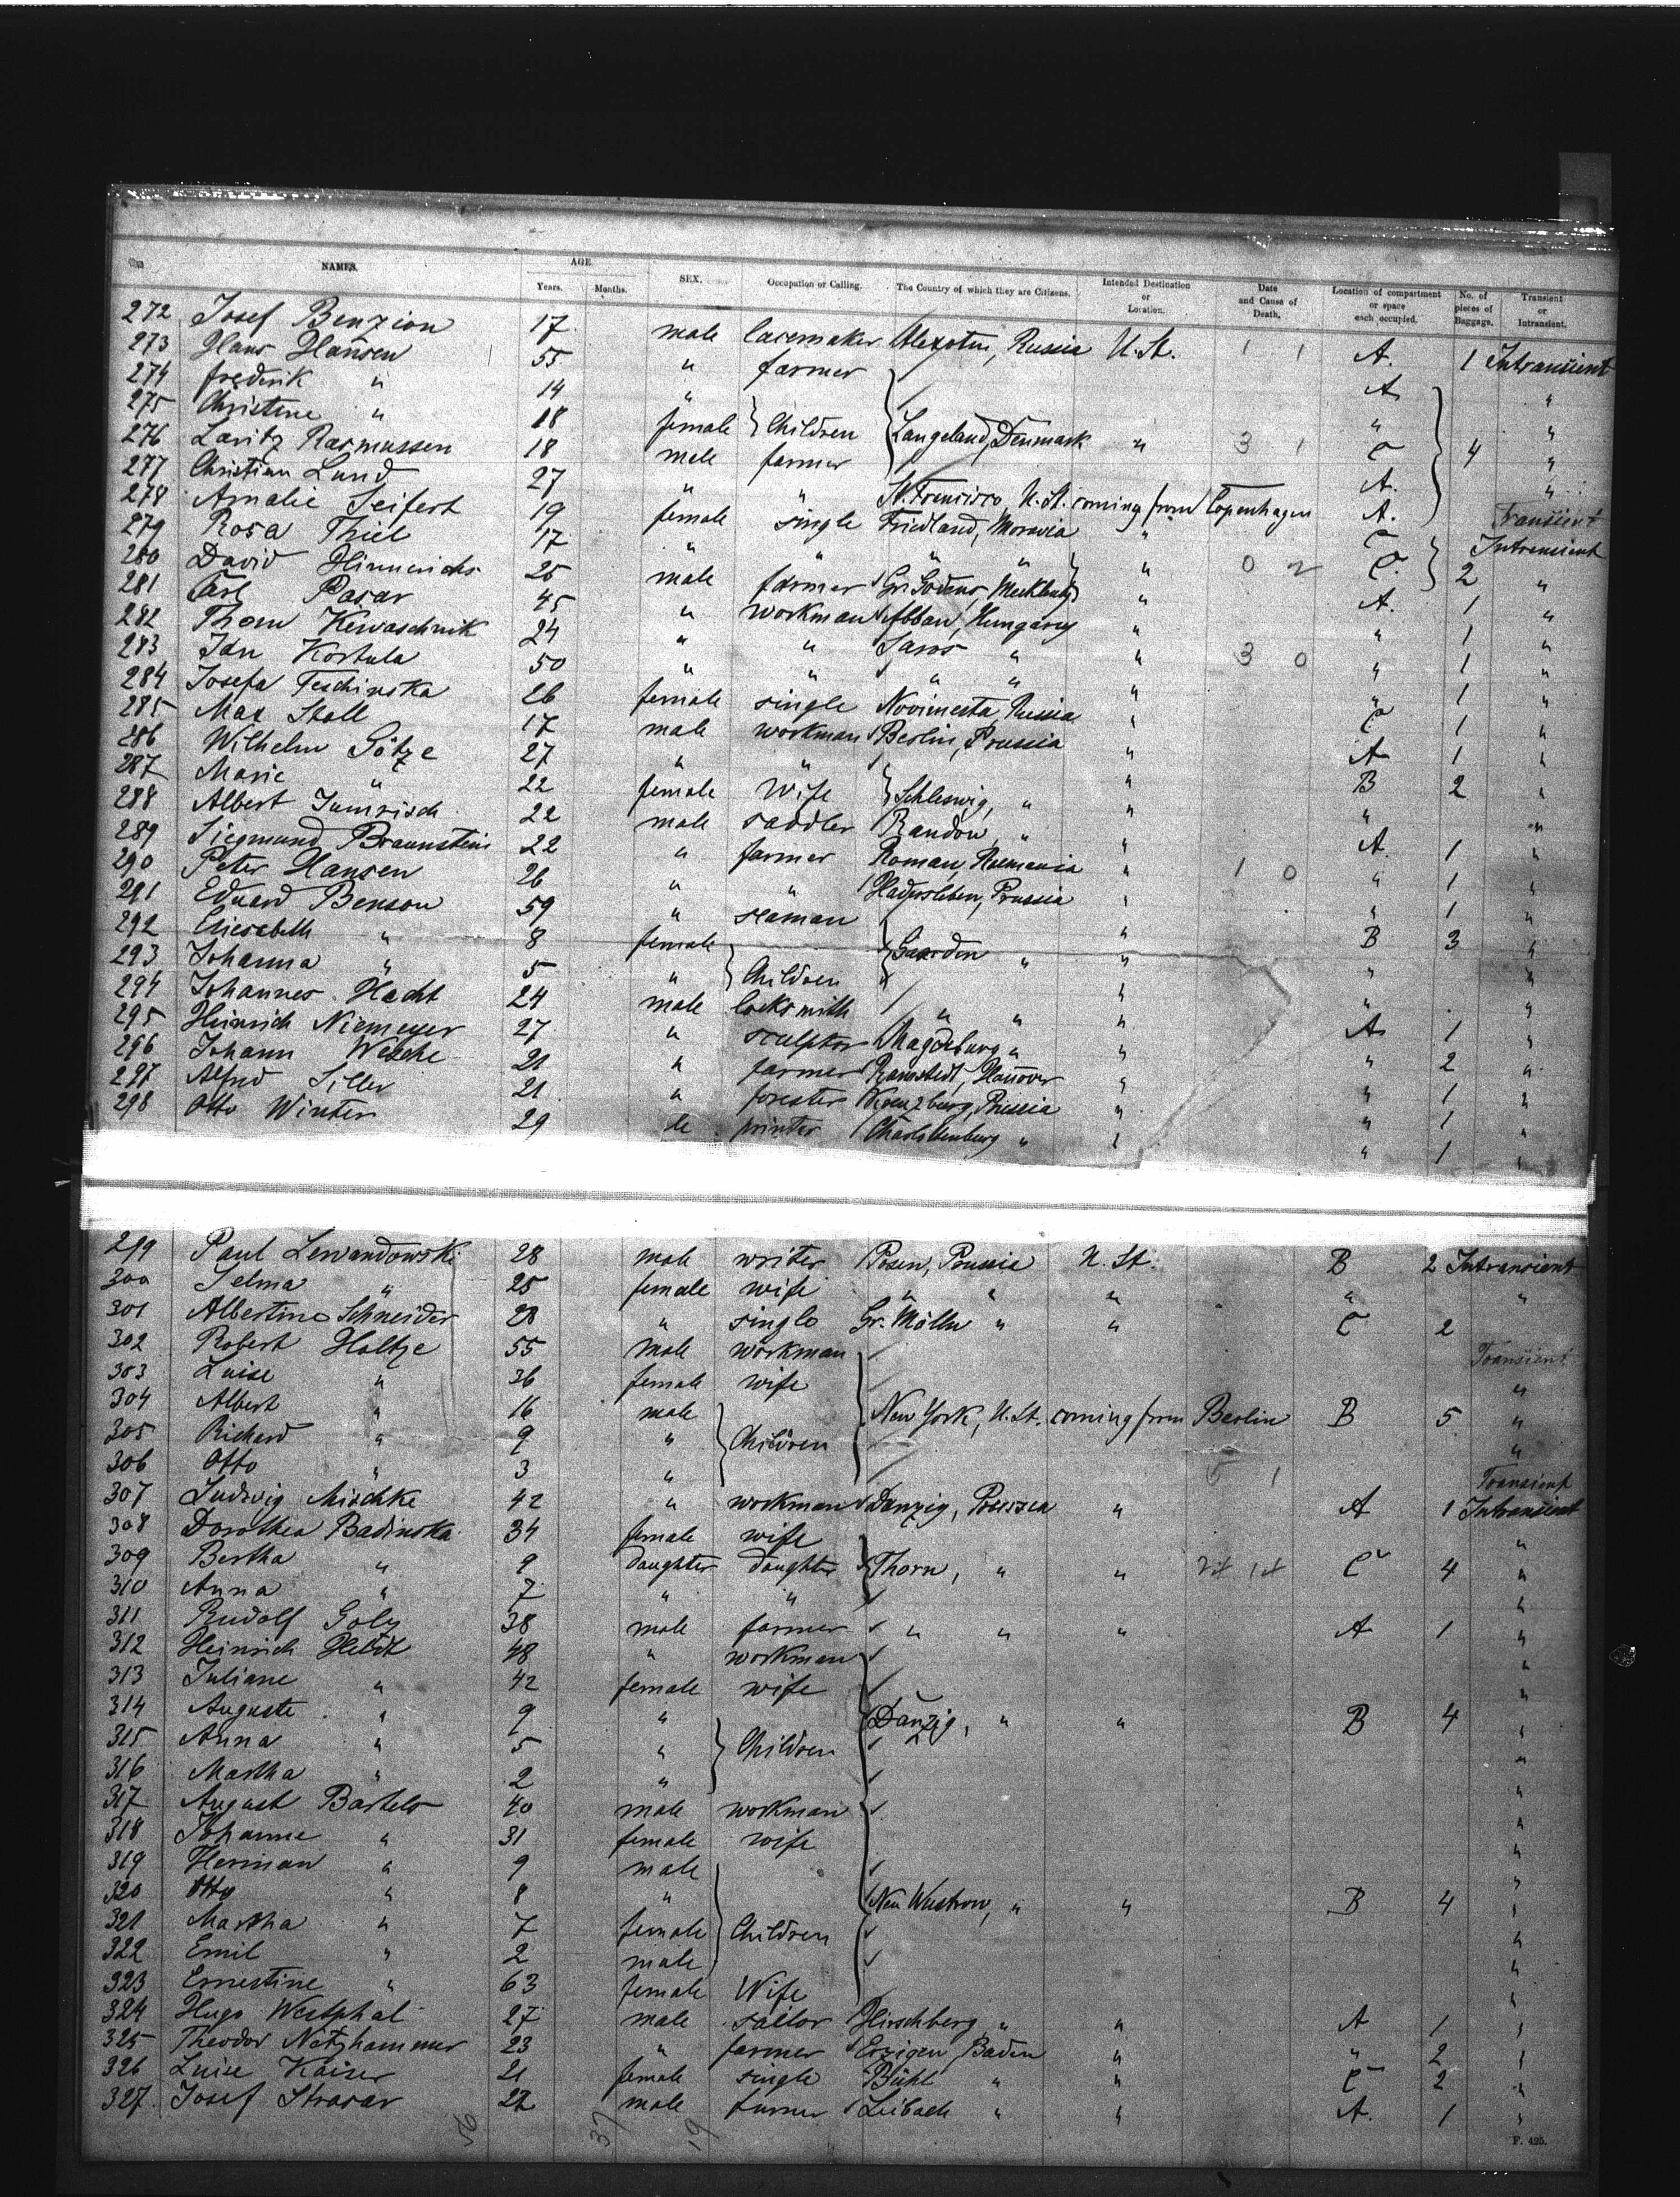 NAMES. AGE Years. Months. SEX. Occupation or Calling. The Country of which they are Citizens. Intended Destination or Location. Date and Cause of Death. Location of compartment or space each occupied. No. of pieces of Baggage. Transient or Intransient.
272 Josef Benzion 17 male lacemaker Russia U. St. 1 1 A. 1 Intransient
273 Hans Hansen 55 " farmer A "
274 Frederik " 14 " " "
275 Christine " 18 female } Children { Langeland, Denmark " 3 1 C 4 "
276 Lavitz Rasmussen 18 male farmer A. "
277 Christian Lund 27 " " St. Francisco, U. St. coming from Copenhagen A. Transient
278 Amalie Seifert 19 female single Friedland, Moravia " C Intransient
279 Rosa Thiel 17 " " " " " 0 2 C. 2 "
280 David Hinnerichs 25 male farmer Mecklbg " A. 1 "
281 Carl Pasar 45 " workman Abbau, Hungary " " 1 "
282 Thom Kewaschnik 24 " " Saros " " 3 0 " 1 "
283 Jan Kostula 50 " " " " " " 1 "
284 Josefa Teschinska 26 female single Novimesta, Russia " C 1 "
285 Max Stoll 17 male workman Berlin, Prussia " A 1 "
286 Wilhelm Götze 27 " " " B 2 "
287 Marie " 22 female Wife } Schleswig, " " " "
288 Albert Jumrisch 22 male saddler Randow " " A. 1 "
289 Siegmund Braunstein 22 " farmer Roman, Roemania " 1 0 " 1 "
290 Peter Hansen 26 " " Hadersleben, Prussia " " 1 "
291 Eduard Benson 59 " seaman " B 3 "
292 Eliesabeth " 8 female { Gaarden " " " "
293 Johanna " 5 " } Children " " "
294 Johannes Hecht 24 male locksmith " " " A 1 "
295 Heinrich Niemeyer 27 " sculptor Magdeburg " " " 2 "
296 Johann Wesche 21 " farmer Ramstedt, Hanover " " 1 "
297 Alfred Siller 21 " forester Kreuzburg, Prussia " " 1 "
298 Otto Winter 29 " printer Charlottenburg " " " 1 "
299 Paul Lewandowski 28 male writer Posen, Prussia U. St. B 2 Intransient
300 Selma " 25 female wife " " " " "
301 Albertine Schneider 28 " single Gr. Mölln " " C 2
302 Robert Holtze 55 male workman Transient
303 Luise " 36 female wife "
304 Albert " 16 male { New York, U. St. coming from Berlin B 5 "
305 Richard " 9 " } Children "
306 Otto " 3 " 1 Transient
307 Ludwig Mischke 42 " workman Danzig, Prussia " A 1 Intransient
308 Dorothea Badinska 34 female wife "
309 Bertha " 9 daughter daughter { Thorn, " " C 4 "
310 Anna " 7 " " "
311 Rudolf Golz 38 male farmer " " " A 1 "
312 Heinrich Heldt 48 " workman "
313 Juliane " 42 female wife "
314 Auguste " 9 " { Danzig, " " B 4 "
315 Anna " 5 " } Children "
316 Martha " 2 " "
317 August Bartels 40 male workman "
318 Johanne " 31 female wife "
319 Herman " 9 male "
320 Otto " 8 " { Neu Wustrow, " " B 4 "
321 Martha " 7 female } Children "
322 Emil " 2 male "
323 Ernestine " 63 female Wife "
324 Hugo Westphal 27 male sailor Hirschberg " " A 1 "
325 Theodor Netzhammer 23 " farmer Erzigen, Baden " " 2 "
326 Luise Kaiser 21 female single Bühl " " C 2 "
327 Josef Strasar 22 male turner Leibach " " A. 1 "
56 37 19
F. 425.